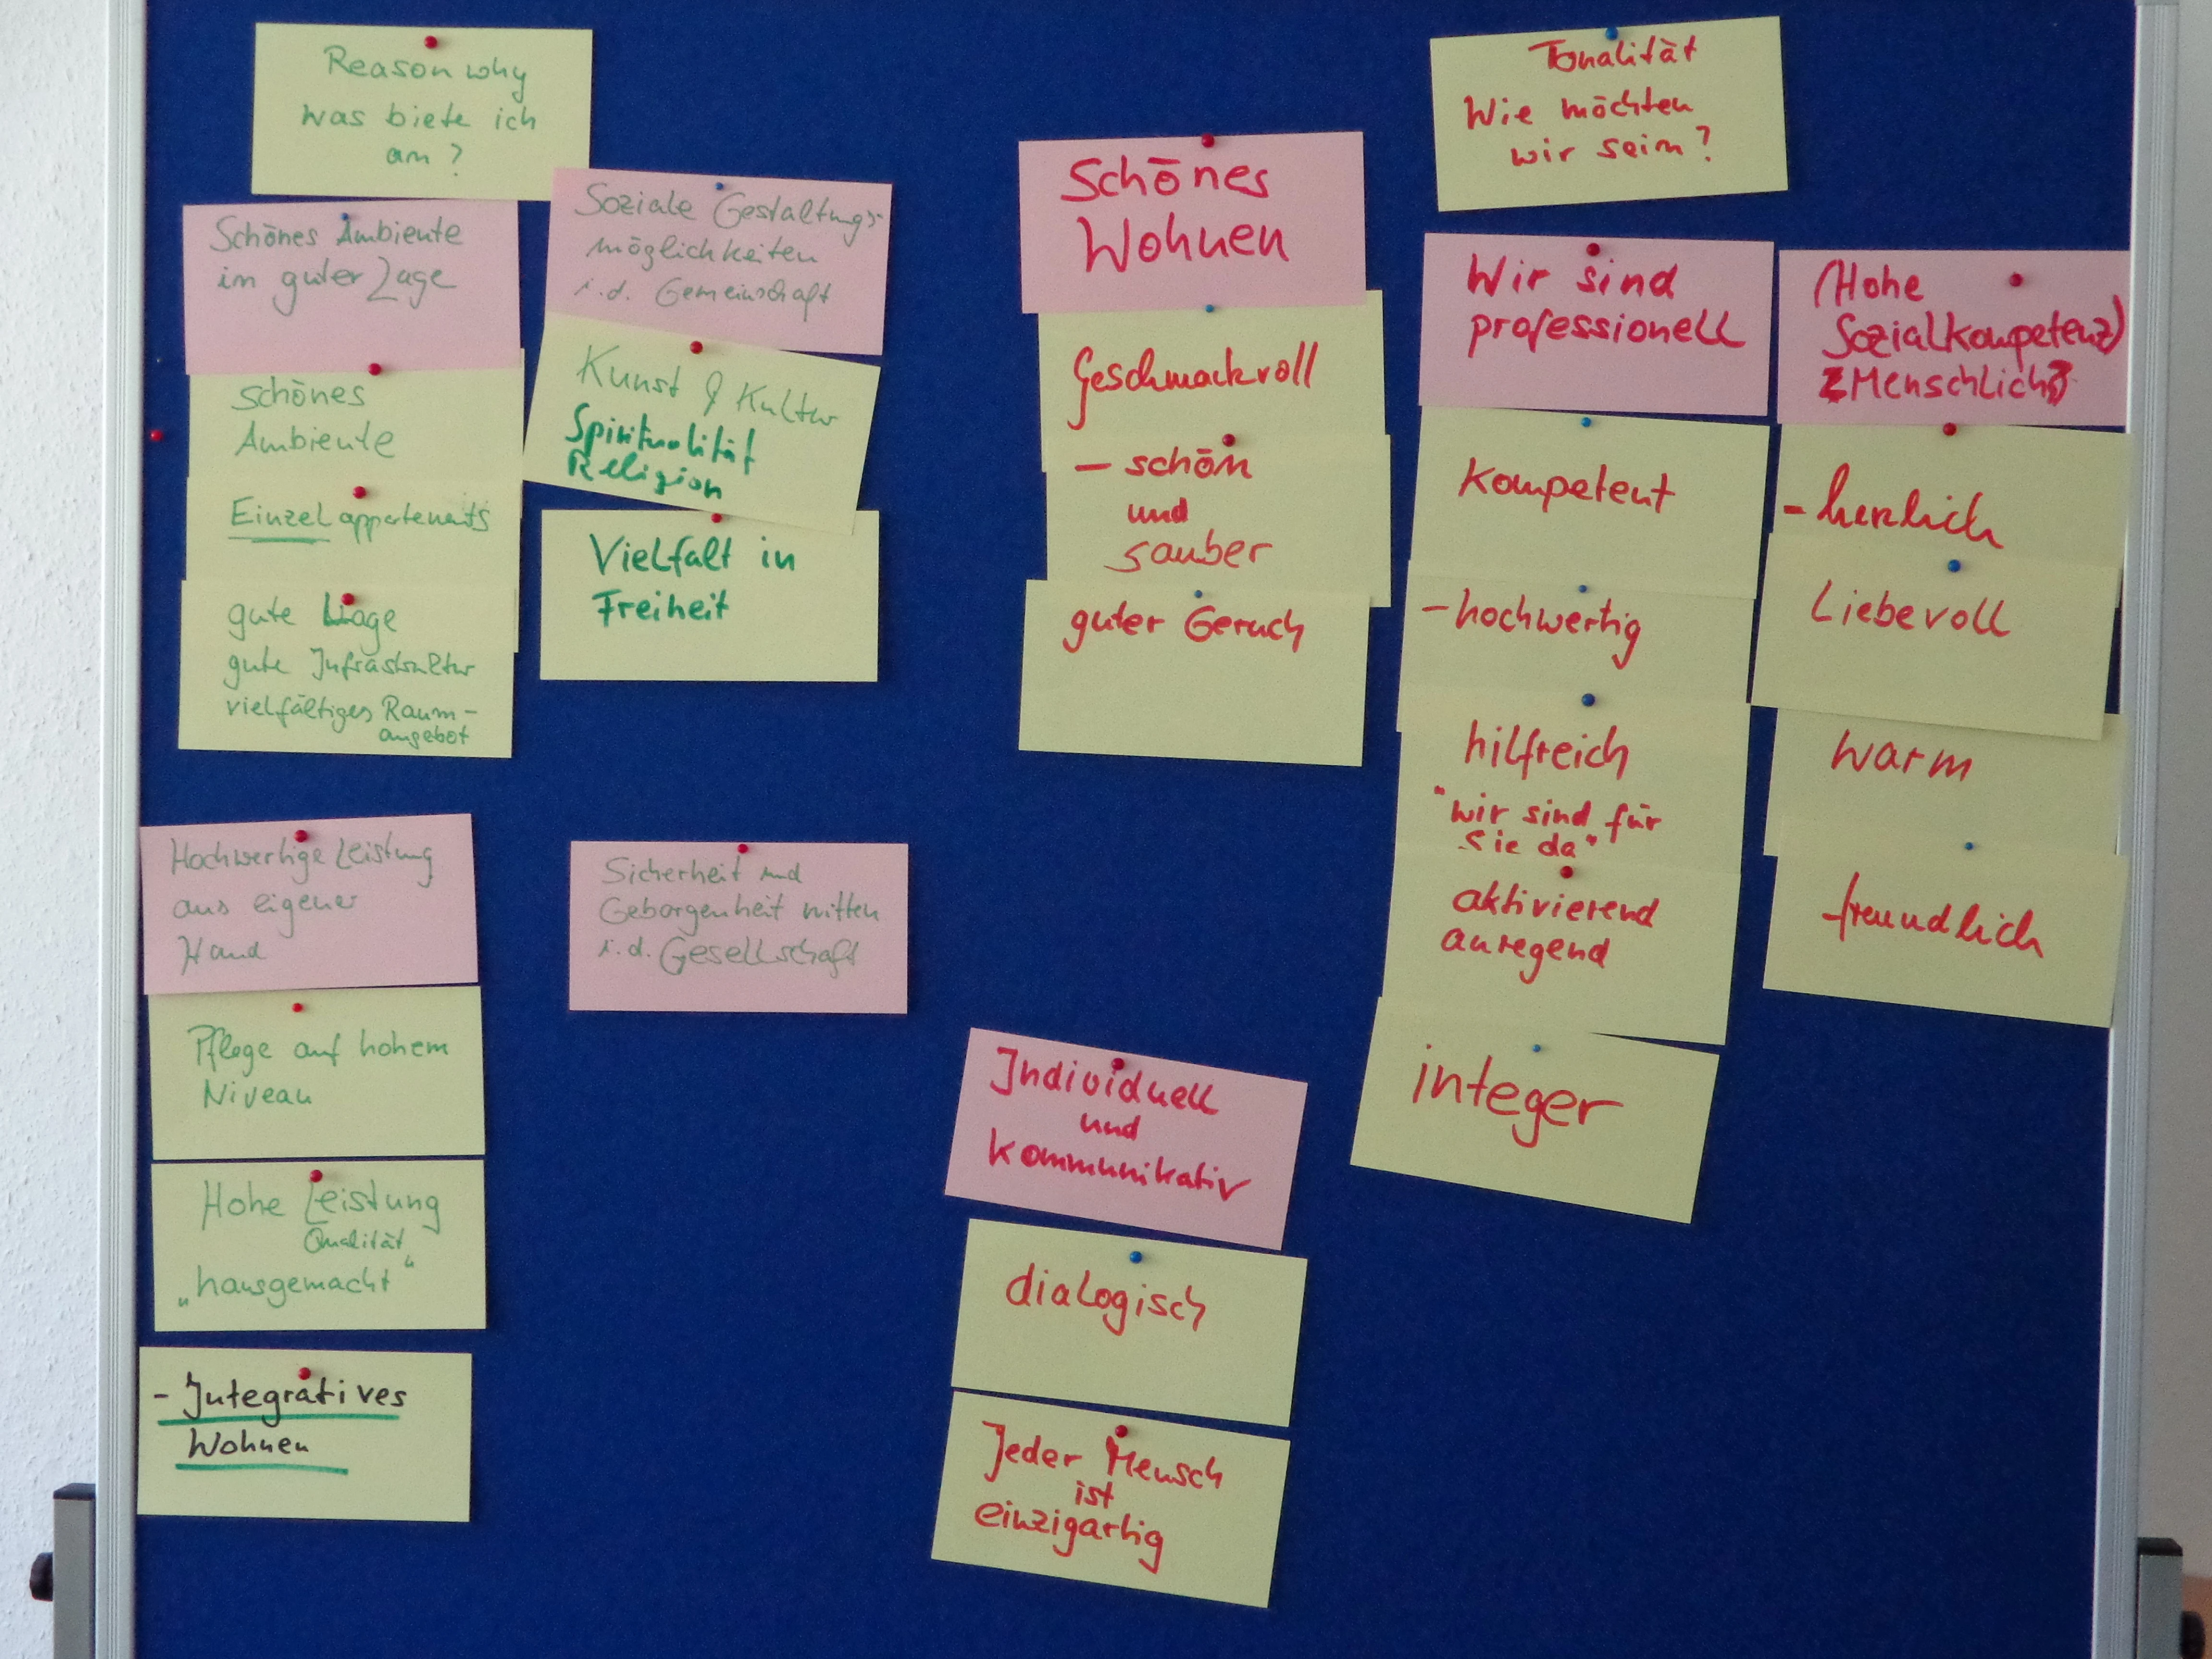 Reason why
was biete ich
an?
Schönes Ambiente
in guter Lage
schönes
Ambiente
Einzelappartements
gute Lage
gute Infrastruktur
vielfältiges Raum-
angebot
Soziale Gestaltungs-
möglichkeiten
i.d. Gemeinschaft
Kunst & Kultur
Spiritualität
Religion
Vielfalt in
Freiheit
Hochwertige Leistung
aus eigener
Hand
Pflege auf hohem
Niveau
Hohe Leistung
Qualität
„hausgemacht“
- Integratives
Wohnen
Sicherheit und
Geborgenheit mitten
i.d. Gesellschaft
Schönes
Wohnen
Geschmackvoll
- schön
und
sauber
guter Geruch
Individuell
und
kommunikativ
dialogisch
Jeder Mensch
ist
einzigartig
Tonalität
Wie möchten
wir sein?
Wir sind
professionell
kompetent
- hochwertig
hilfreich
"wir sind für
Sie da"
aktivierend
anregend
integer
(Hohe
Sozialkompetenz)
Menschlich
- herzlich
Liebevoll
warm
freundlich